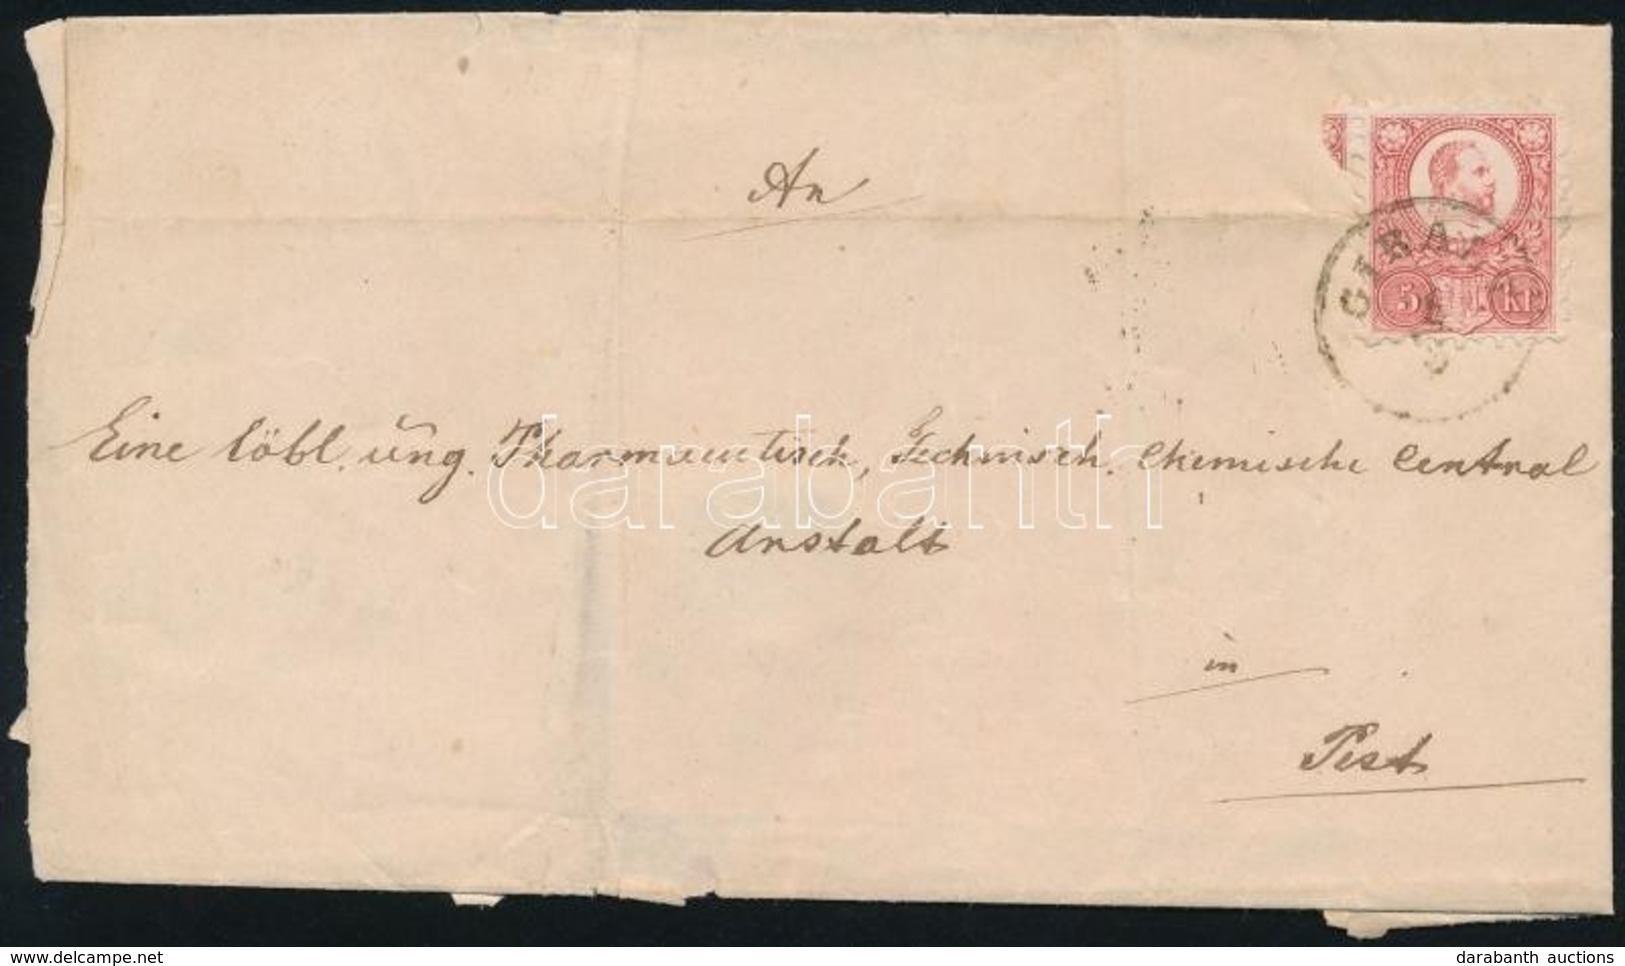 An
5 Kr
Eine löbl. ung. Pharmaceutisch, Technisch. Chemische Central
Anstalt
in
Pest
darabanth
delcampe.net
darabanth auctions